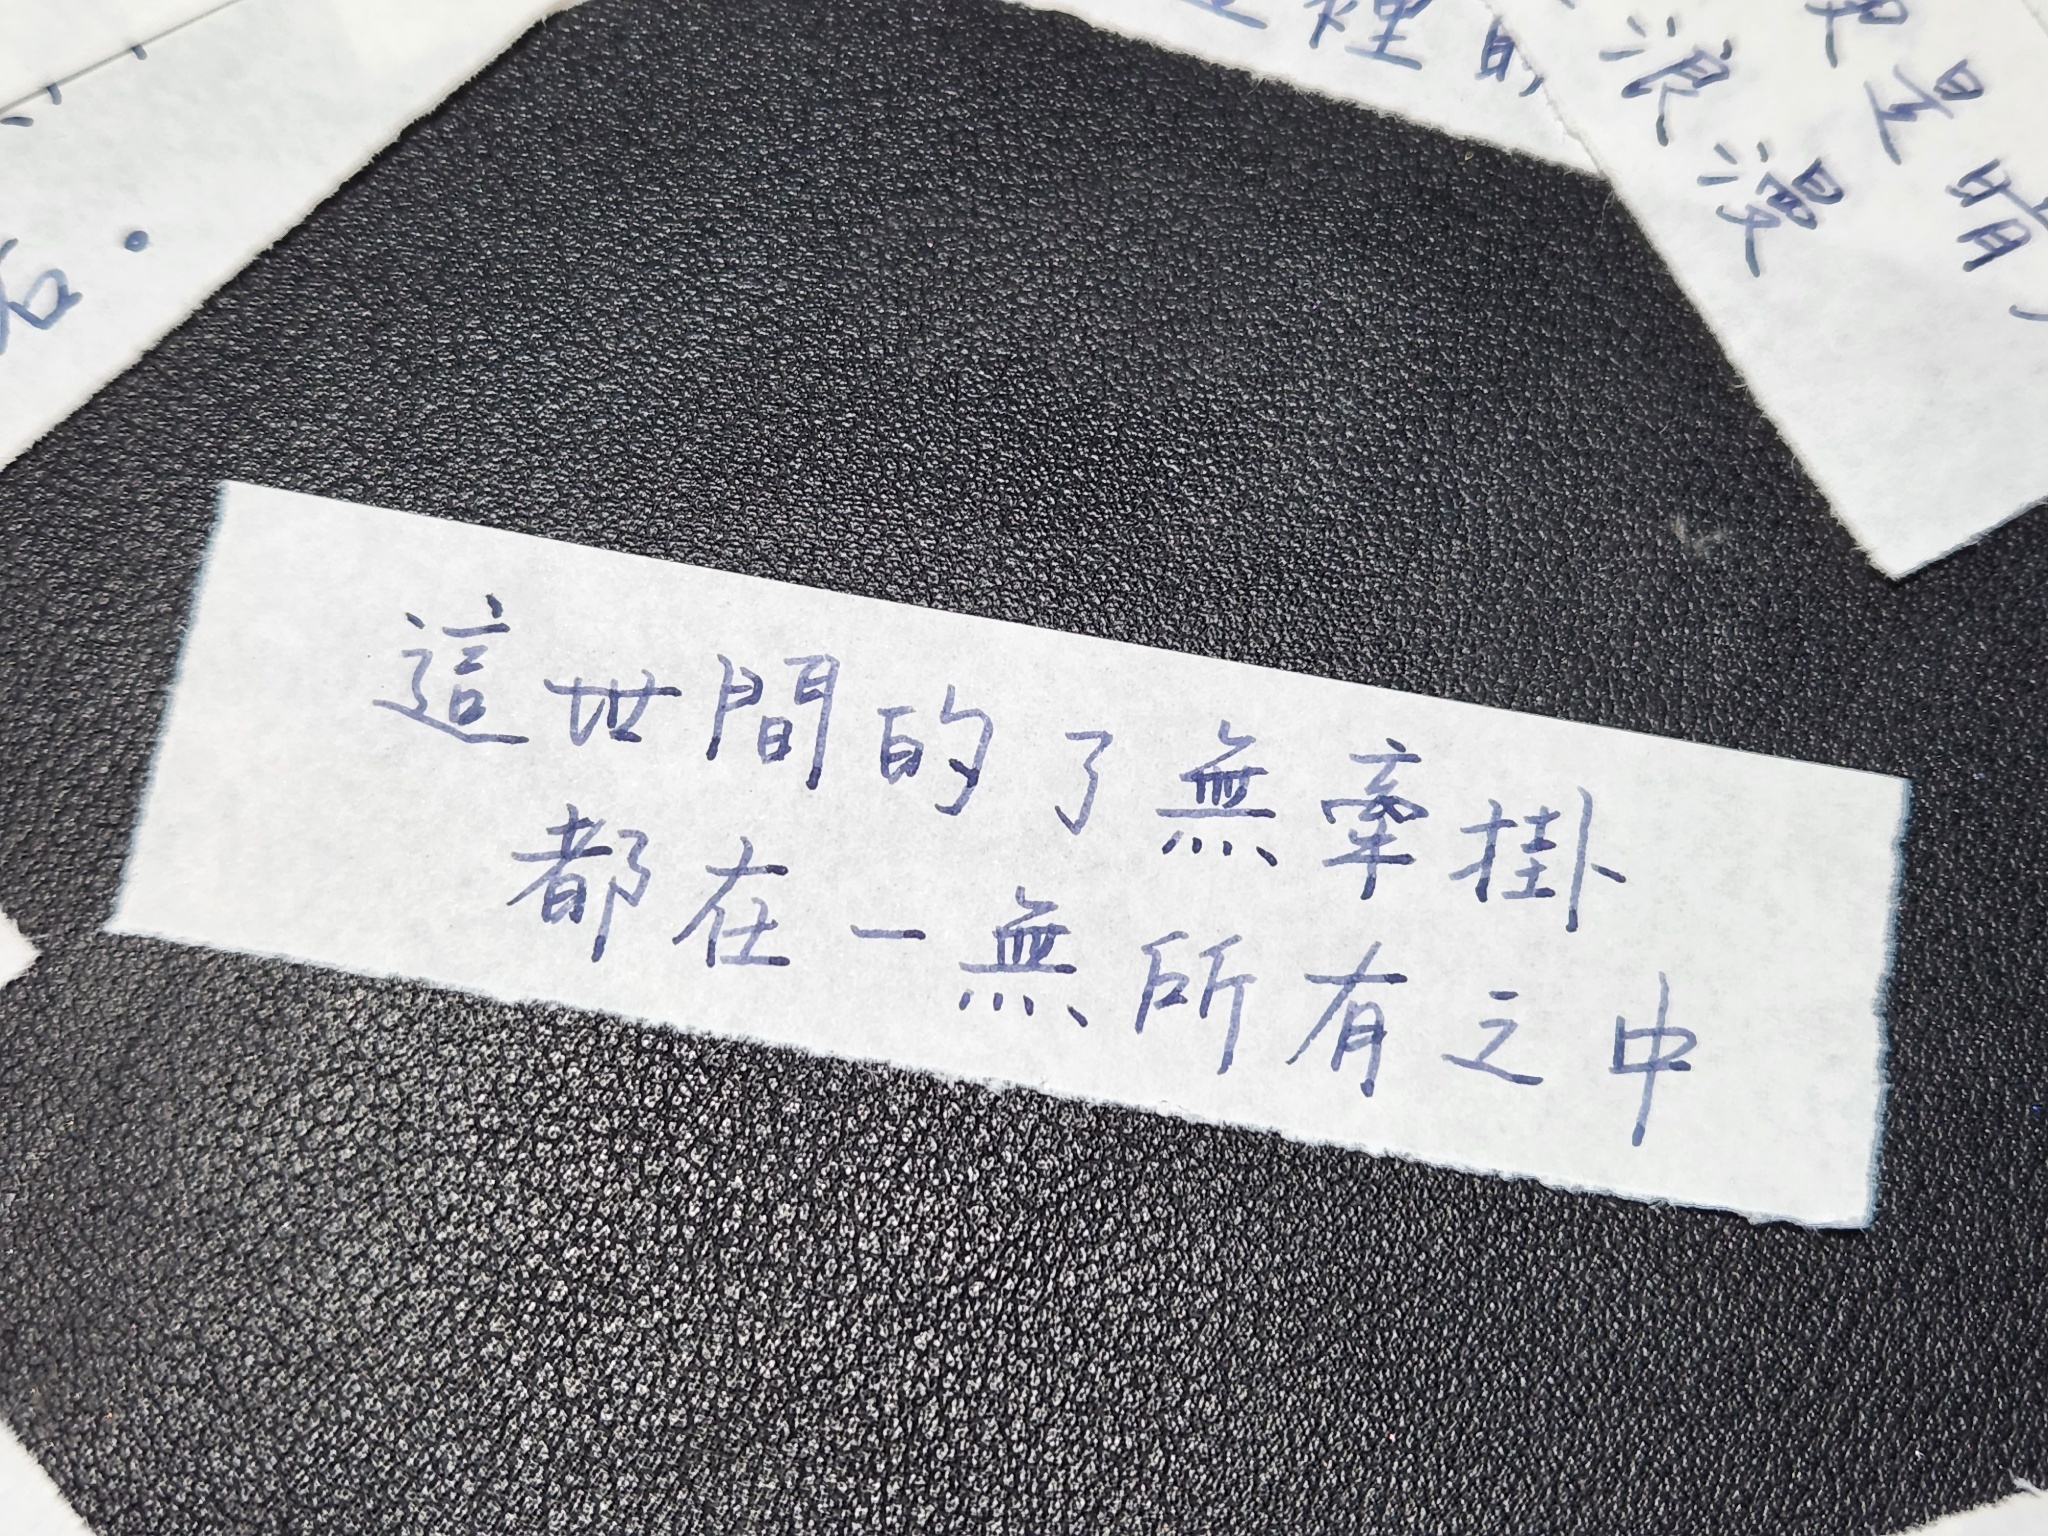 裡的
浪漫
是晴
名.
這世間的了無牽掛
都在一無所有之中